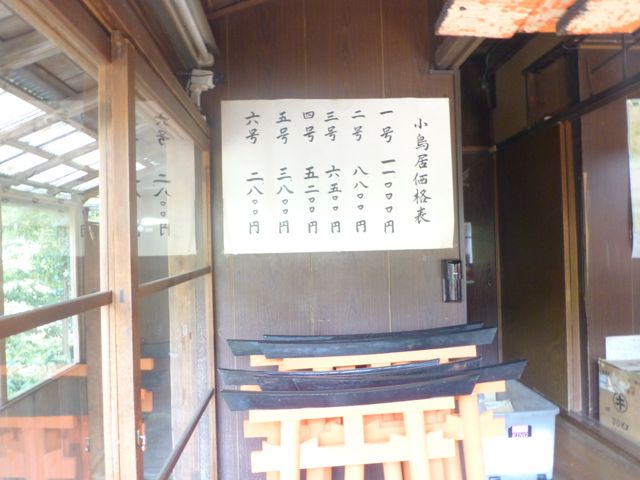 小鳥居価格表
一号 一一〇〇〇円
二号 八八〇〇円
三号 六五〇〇円
四号 五二〇〇円
五号 三八〇〇円
六号 二八〇〇円